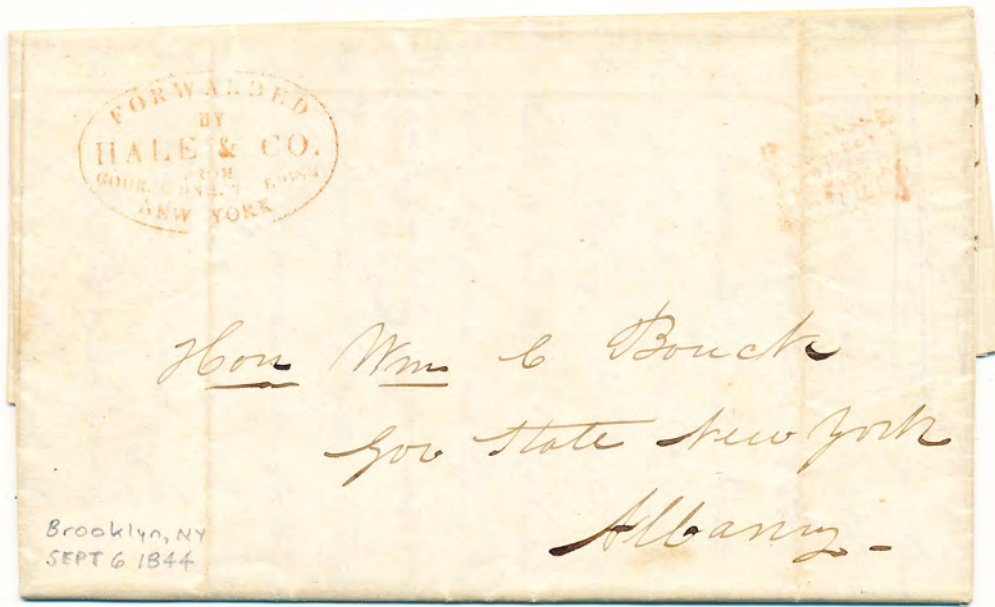 FORWARDED
BY
HALE & CO.
FROM
NEW YORK
Hon Wm C Bouck
Gov State New York
Albany -
Brooklyn, NY
SEPT 6 1844